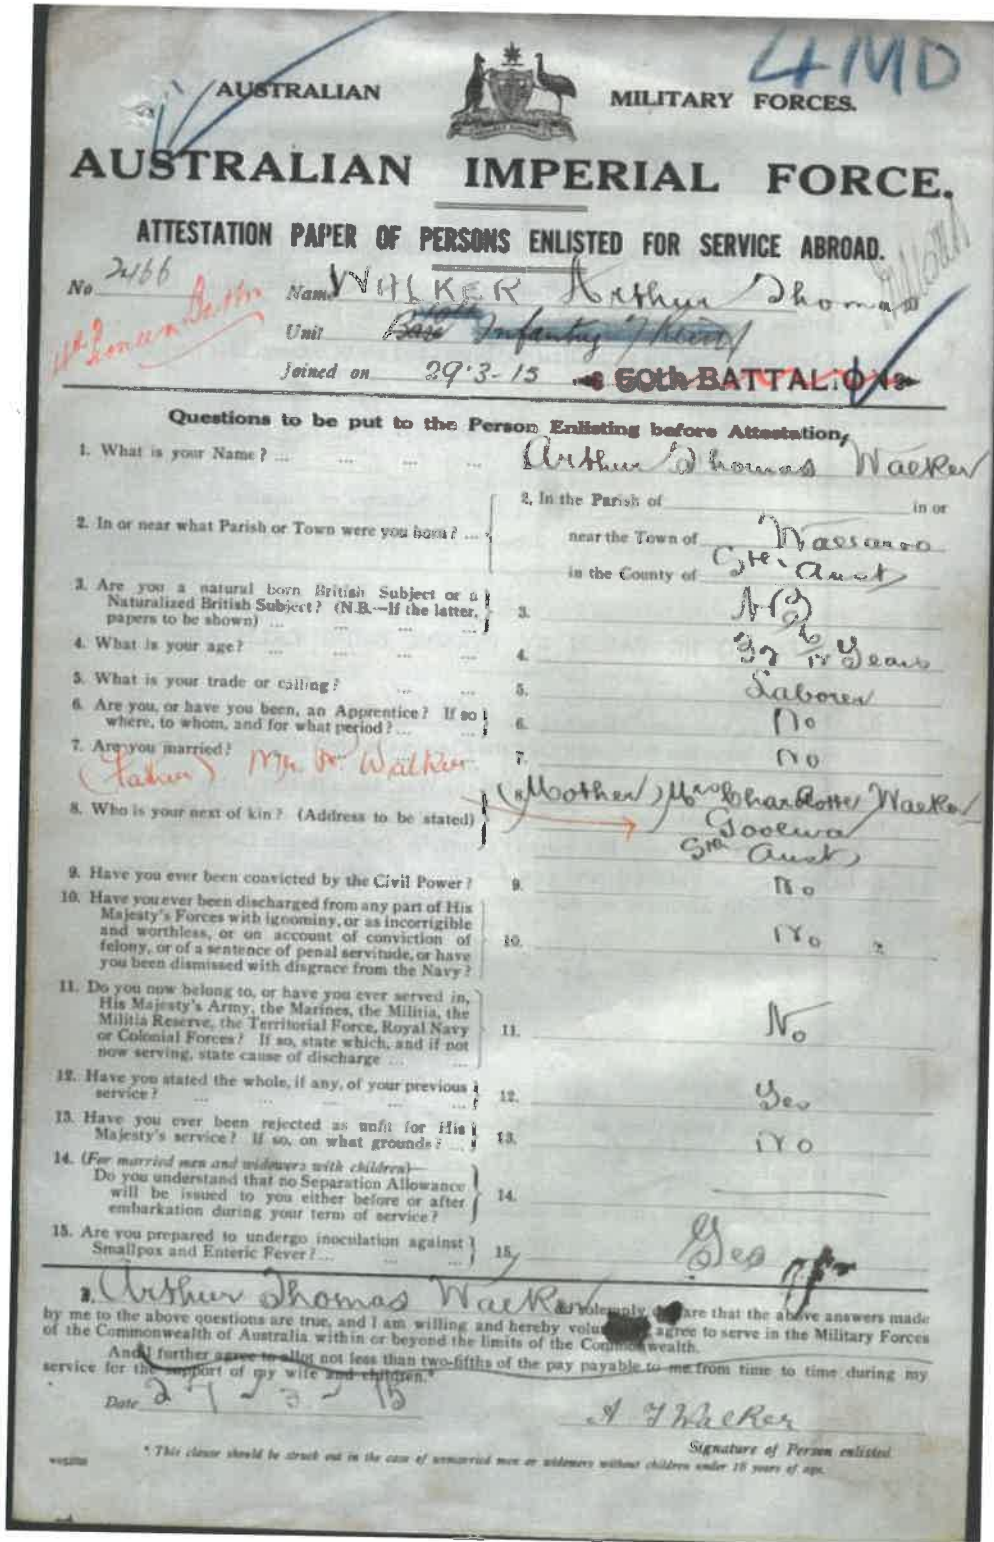 4 MD
AUSTRALIAN MILITARY FORCES.
AUSTRALIAN IMPERIAL FORCE.
ATTESTATION PAPER OF PERSONS ENLISTED FOR SERVICE ABROAD.
No 2466 Name WALKER Arthur Thomas
Unit Base 10th Infantry
Joined on 29.3-15 50th BATTALION
Questions to be put to the Person Enlisting before Attestation,
1. What is your Name? ... ... ... ... Arthur Thomas Walker
2. In the Parish of in or
2. In or near what Parish or Town were you born? ... near the Town of
in the County of Sth. Aust
3. Are you a natural born British Subject or a
Naturalized British Subject? (N.B.—If the latter, 3.
papers to be shown) ... ... ... ...
4. What is your age? ... ... ... ... 4. Years
5. What is your trade or calling? ... ... 5. Laborer
6. Are you, or have you been, an Apprentice? If so
where, to whom, and for what period? ... ... 6. No
7. Are you married? 7. No
(Father) Mr W. Walker
(Mother) Mrs Charlotte Walker
8. Who is your next of kin? (Address to be stated) 8. Goolwa
Sth Aust
9. Have you ever been convicted by the Civil Power? 9. No
10. Have you ever been discharged from any part of His
Majesty's Forces with ignominy, or as incorrigible
and worthless, or on account of conviction of 10. No
felony, or of a sentence of penal servitude, or have
you been dismissed with disgrace from the Navy?
11. Do you now belong to, or have you ever served in,
His Majesty's Army, the Marines, the Militia, the
Militia Reserve, the Territorial Force, Royal Navy 11. No
or Colonial Forces? If so, state which, and if not
now serving, state cause of discharge ... ...
12. Have you stated the whole, if any, of your previous
service? ... ... ... ... ... 12. Yes
13. Have you ever been rejected as unfit for His
Majesty's service? If so, on what grounds? ... 13. No
14. (For married men and widowers with children)—
Do you understand that no Separation Allowance
will be issued to you either before or after 14.
embarkation during your term of service?
15. Are you prepared to undergo inoculation against
Smallpox and Enteric Fever? ... ... ... 15. Yes
I, Arthur Thomas Walker do solemnly declare that the above answers made
by me to the above questions are true, and I am willing and hereby agree to serve in the Military Forces
of the Commonwealth of Australia within or beyond the limits of the Commonwealth.
And I further agree to allot not less than two-fifths of the pay payable to me from time to time during my
service for the support of my wife and children.*
Date 29-3-15 A T Walker
Signature of Person enlisted.
* This clause should be struck out in the case of unmarried men or widowers without children under 18 years of age.